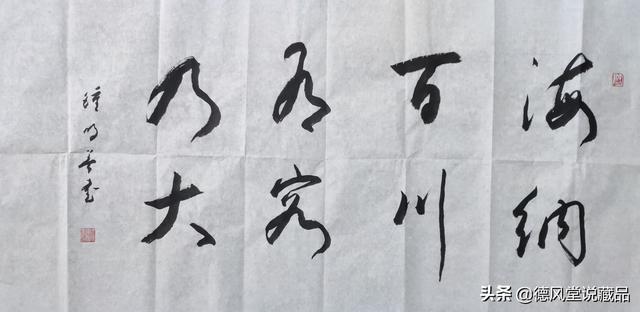 海纳
百川
有容
乃大
钟鸣善书
头条@德风堂说藏品